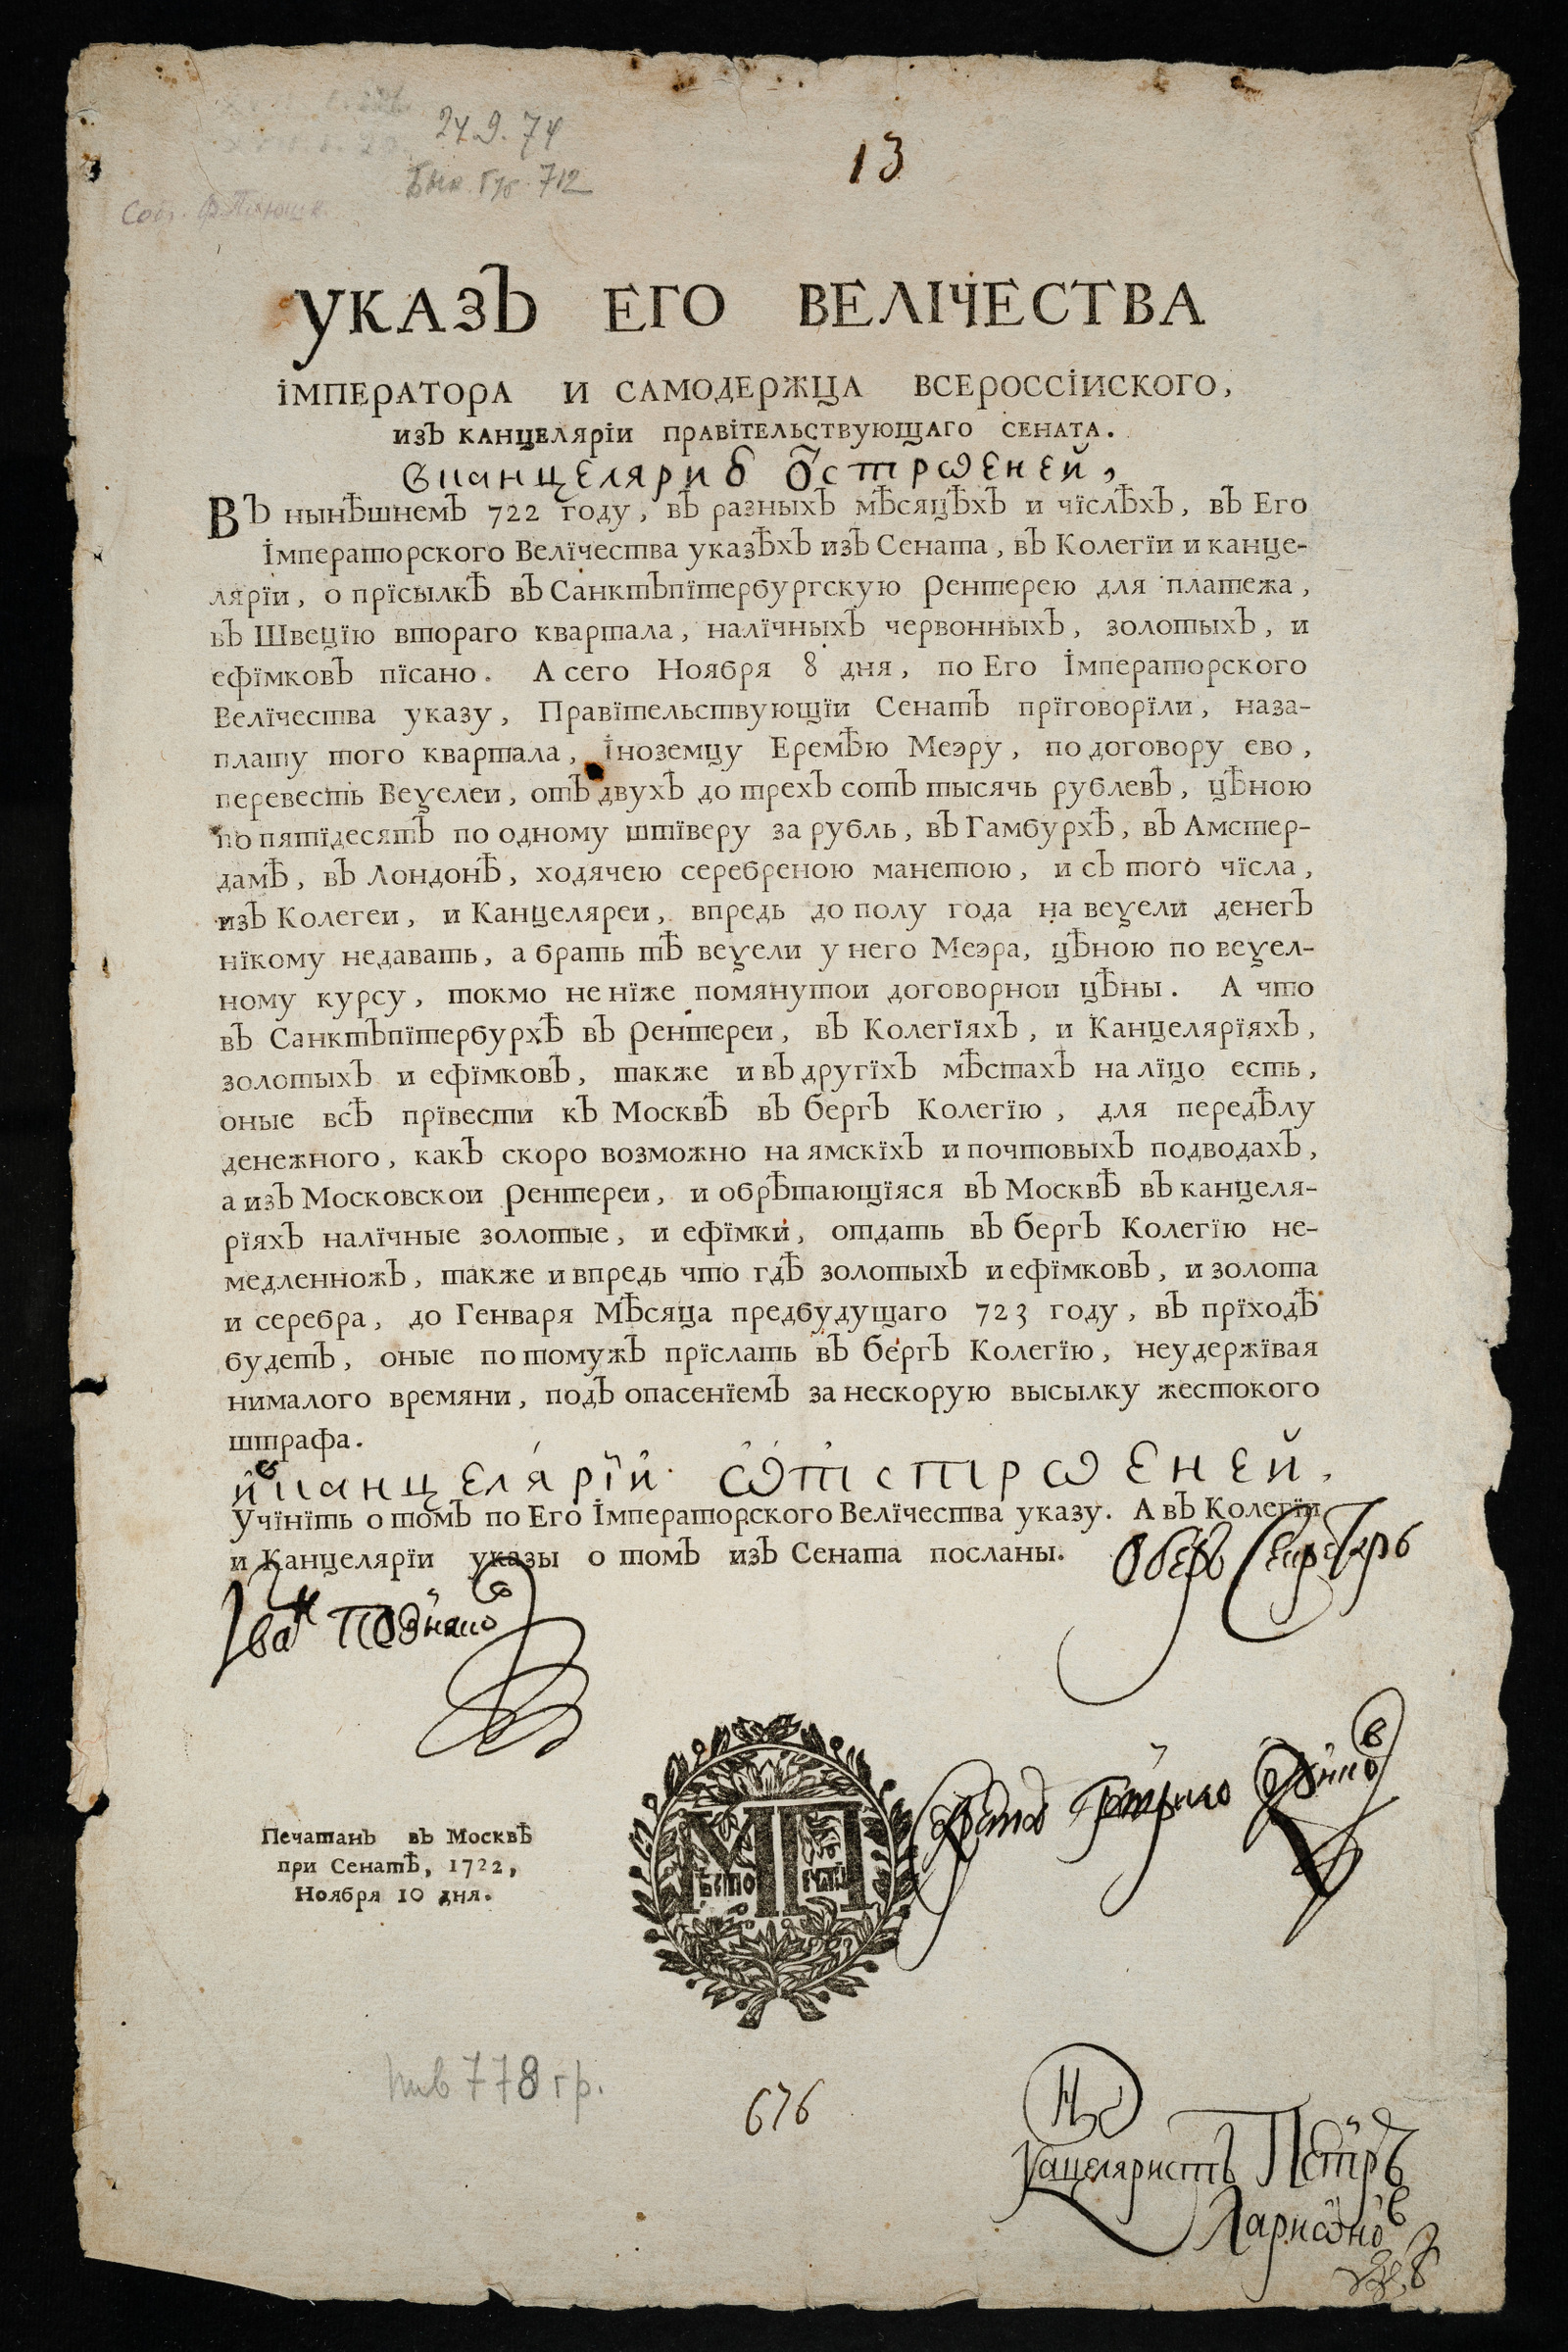 24.9.74
13
712
УКАЗЪ ЕГО ВЕЛІЧЕСТВА
ІМПЕРАТОРА И САМОДЕРЖЦА ВСЕРОССІИСКОГО,
ИЗЪ КАНЦЕЛЯРІИ ПРАВІТЕЛЬСТВУЮЩАГО СЕНАТА.
Вканцелярию ѿ строѡеней,
ВЪ нынѣшнемЪ 722 году, вЪ разныхЪ мѣсяцѣхЪ и чїслѣхЪ, вЪ Его
Імператорского Велїчества указѣхЪ изЪ Сената, вЪ Колегїи и канце-
лярїи, о прїсылкѣ вЪ СанктЪпїтербургскую Рентерею для платежа,
вЪ Швецїю втораго квартала, налїчныхЪ червонныхЪ, золотыхЪ, и
ефїмковЪ пїсано. А сего Ноября 8 дня, по Его Імператорского
Велїчества указу, Правїтельствующїи СенатЪ прїговорїли, наза-
плату того квартала, іноземцу Еремѣю Меэру, по договору ево,
перевесть Веѯелеи, отЪ двухЪ до трехЪ сотЪ тысячь рублевЪ, цѣною
по пятїдесятЪ по одному штїверу за рубль, вЪ Гамбурхѣ, вЪ Амстер-
дамѣ, вЪ Лондонѣ, ходячею серебреною манетою, и сЪ того чїсла,
изЪ Колегеи, и Канцеляреи, впредь до полу года на веѯели денегЪ
нїкому недавать, а брать тѣ веѯели у него Меэра, цѣною по веѯел-
ному курсу, токмо не нїже помянутои договорнои цѣны. А что
вЪ СанктЪпїтербурхѣ вЪ Рентереи, вЪ КолегїяхЪ, и КанцелярїяхЪ,
золотыхЪ и ефїмковЪ, также и вЪ другїхЪ мѣстахЪ на лїцо есть,
оные всѣ прївести кЪ Москвѣ вЪ бергЪ Колегїю, для передѣлу
денежного, какЪ скоро возможно на ямскїхЪ и почтовыхЪ подводахЪ,
а изЪ Московскои Рентереи, и обрѣтающїяся вЪ Москвѣ вЪ канцеля-
рїяхЪ налїчные золотые, и ефїмки, отдать вЪ бергЪ Колегїю не-
медленножЪ, также и впредь что гдѣ золотыхЪ и ефїмковЪ, и золота
и серебра, до Генваря Мѣсяца предбудущаго 723 году, вЪ прїходѣ
будетЪ, оные по томужЪ прїслать вЪ бергЪ Колегїю, неудержївая
нималого времяни, подЪ опасенїемЪ за нескорую высылку жестокого
штрафа.
и канцелярїи ѿ строѡеней.
Учїнїть о томЪ по Его Імператорского Велїчества указу. А вЪ Колегїи
и Канцелярїи указы о томЪ изЪ Сената посланы. Оберъ Секретарь
Іван Позняков
МП
Печатанъ въ Москвѣ
при Сенатѣ, 1722,
Ноября 10 дня.
778 гр.
676
Канцеляристъ Петръ
Ларионов